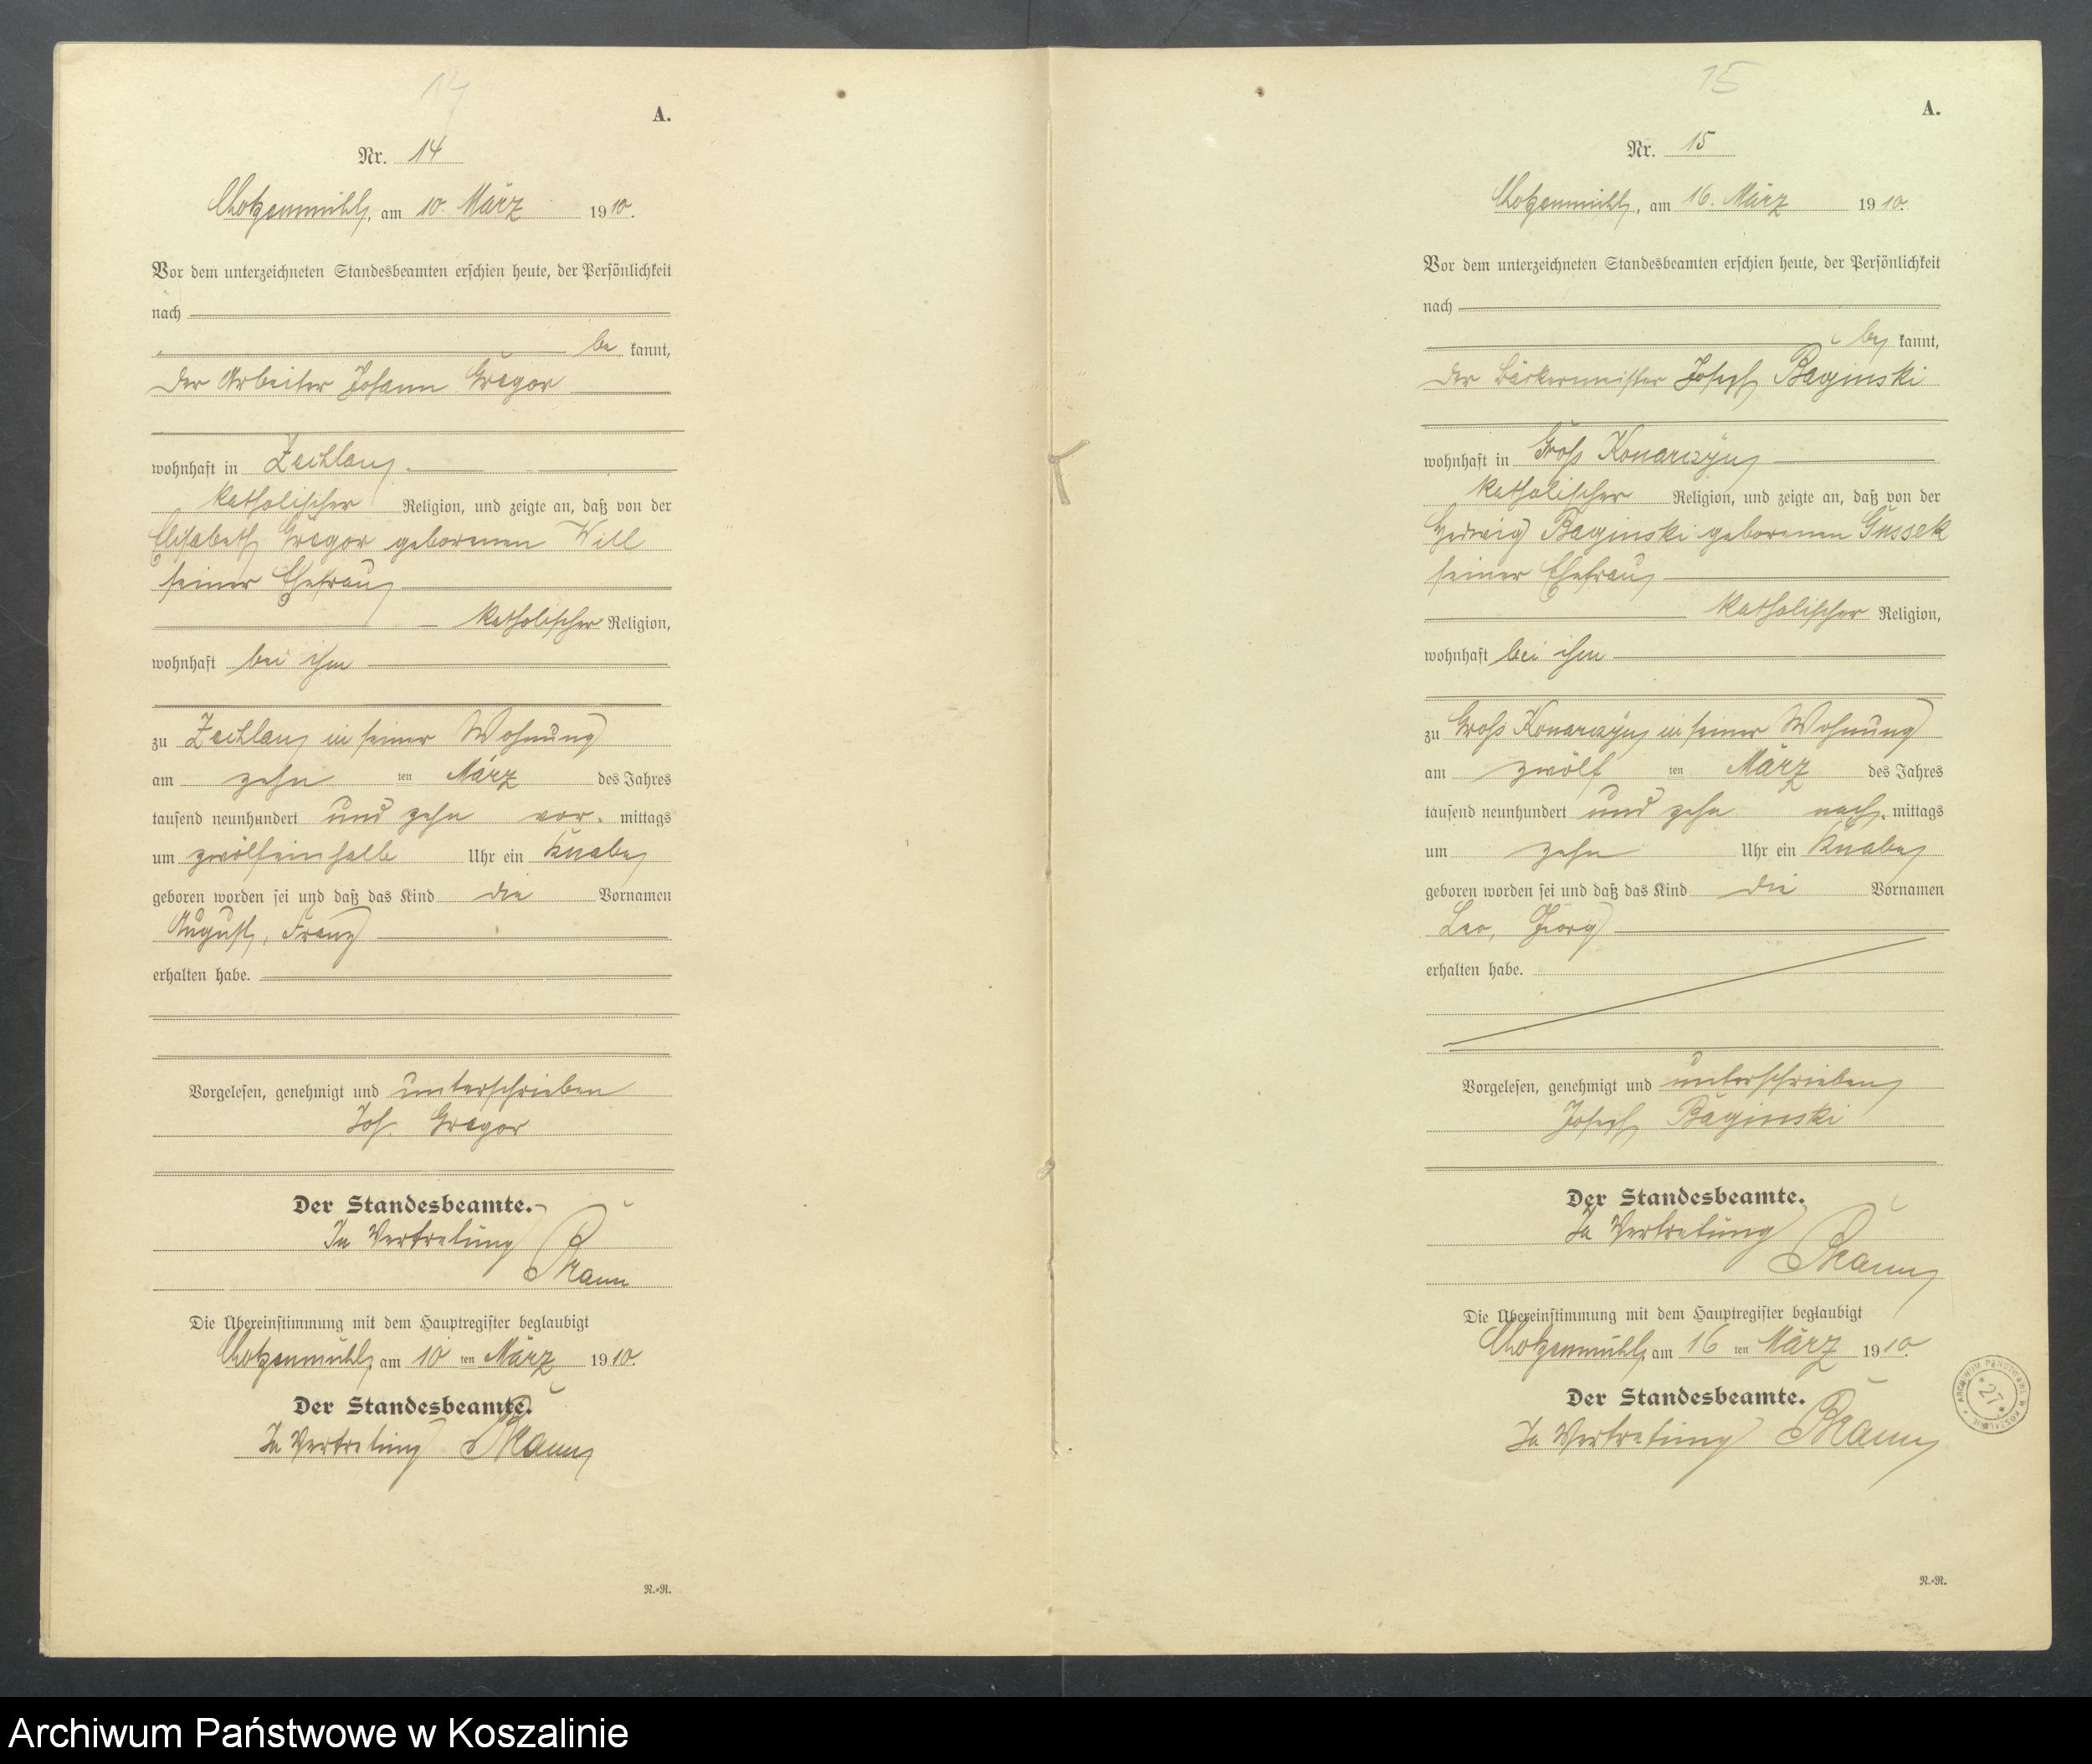 14
A.
Nr. 14
Chotzenmühl, am 10. März 1910.
Vor dem unterzeichneten Standesbeamten erschien heute, der Persönlichkeit
nach
be kannt,
der Arbeiter Johann Gregor
wohnhaft in Zechlau
katholischer Religion, und zeigte an, daß von der
Elisabeth Gregor geborenen Will
seiner Ehefrau
katholischer Religion,
wohnhaft bei ihm
zu Zechlau in seiner Wohnung
am zehn ten März des Jahres
tausend neunhundert und zehn vor- mittags
um zwölfeinhalb Uhr ein Knabe
geboren worden sei und daß das Kind die Vornamen
August, Franz
erhalten habe.
Vorgelesen, genehmigt und unterschrieben
Joh. Gregor
Der Standesbeamte.
In Vertretung
Die Übereinstimmung mit dem Hauptregister beglaubigt
Chotzenmühl, am 10 ten März 1910.
Der Standesbeamte.
In Vertretung
N.-N.
15
A.
Nr. 15
Chotzenmühl, am 16. März 1910.
Vor dem unterzeichneten Standesbeamten erschien heute, der Persönlichkeit
nach
be kannt,
der Bäckermeister Josef Baginski
wohnhaft in Groß Konarczyn
katholischer Religion, und zeigte an, daß von der
Hedwig Baginski geborenen Gussek
seiner Ehefrau
katholischer Religion,
wohnhaft bei ihm
zu Groß Konarczyn in seiner Wohnung
am zwölf ten März des Jahres
tausend neunhundert und zehn nach- mittags
um zehn Uhr ein Knabe
geboren worden sei und daß das Kind die Vornamen
Leo, Georg
erhalten habe.
Vorgelesen, genehmigt und unterschrieben
Josef Baginski
Der Standesbeamte.
In Vertretung
Die Übereinstimmung mit dem Hauptregister beglaubigt
Chotzenmühl, am 16 ten März 1910.
Der Standesbeamte.
In Vertretung
ARCHIWUM PAŃSTWOWE W KOSZALINIE
*27*
N.-N.
Archiwum Państwowe w Koszalinie